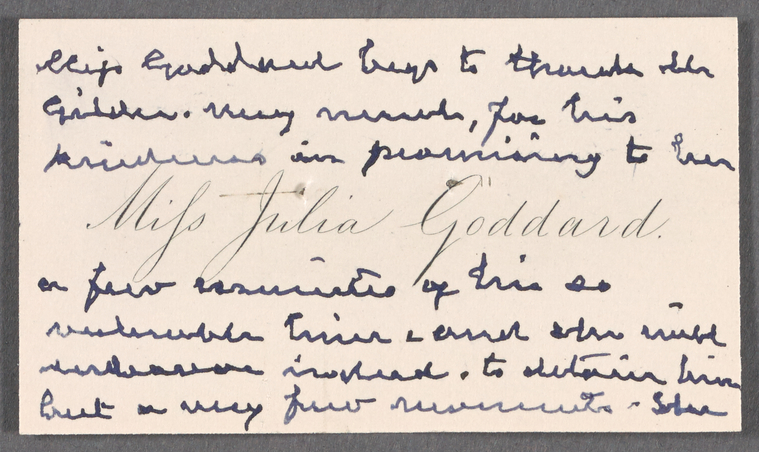 Miss Goddard begs to thank Mr
Gilder. very much, for his
kindness in promising to her
Miss Julia Goddard.
a few minutes of his so
valuable time - and she will
endeavor instead. to detain him
but a very few moments - She